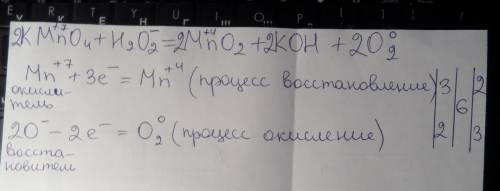 2KMn⁺⁷O₄ + H₂O₂⁻ = 2Mn⁺⁴O₂ + 2KOH + 2O₂⁰
Mn⁺⁷ + 3e⁻ = Mn⁺⁴ (процесс восстановление) | 3 | 6 | 2
окислитель
2O⁻ - 2e⁻ = O₂⁰ (процесс окисление) | 2 | | 3
восстановитель